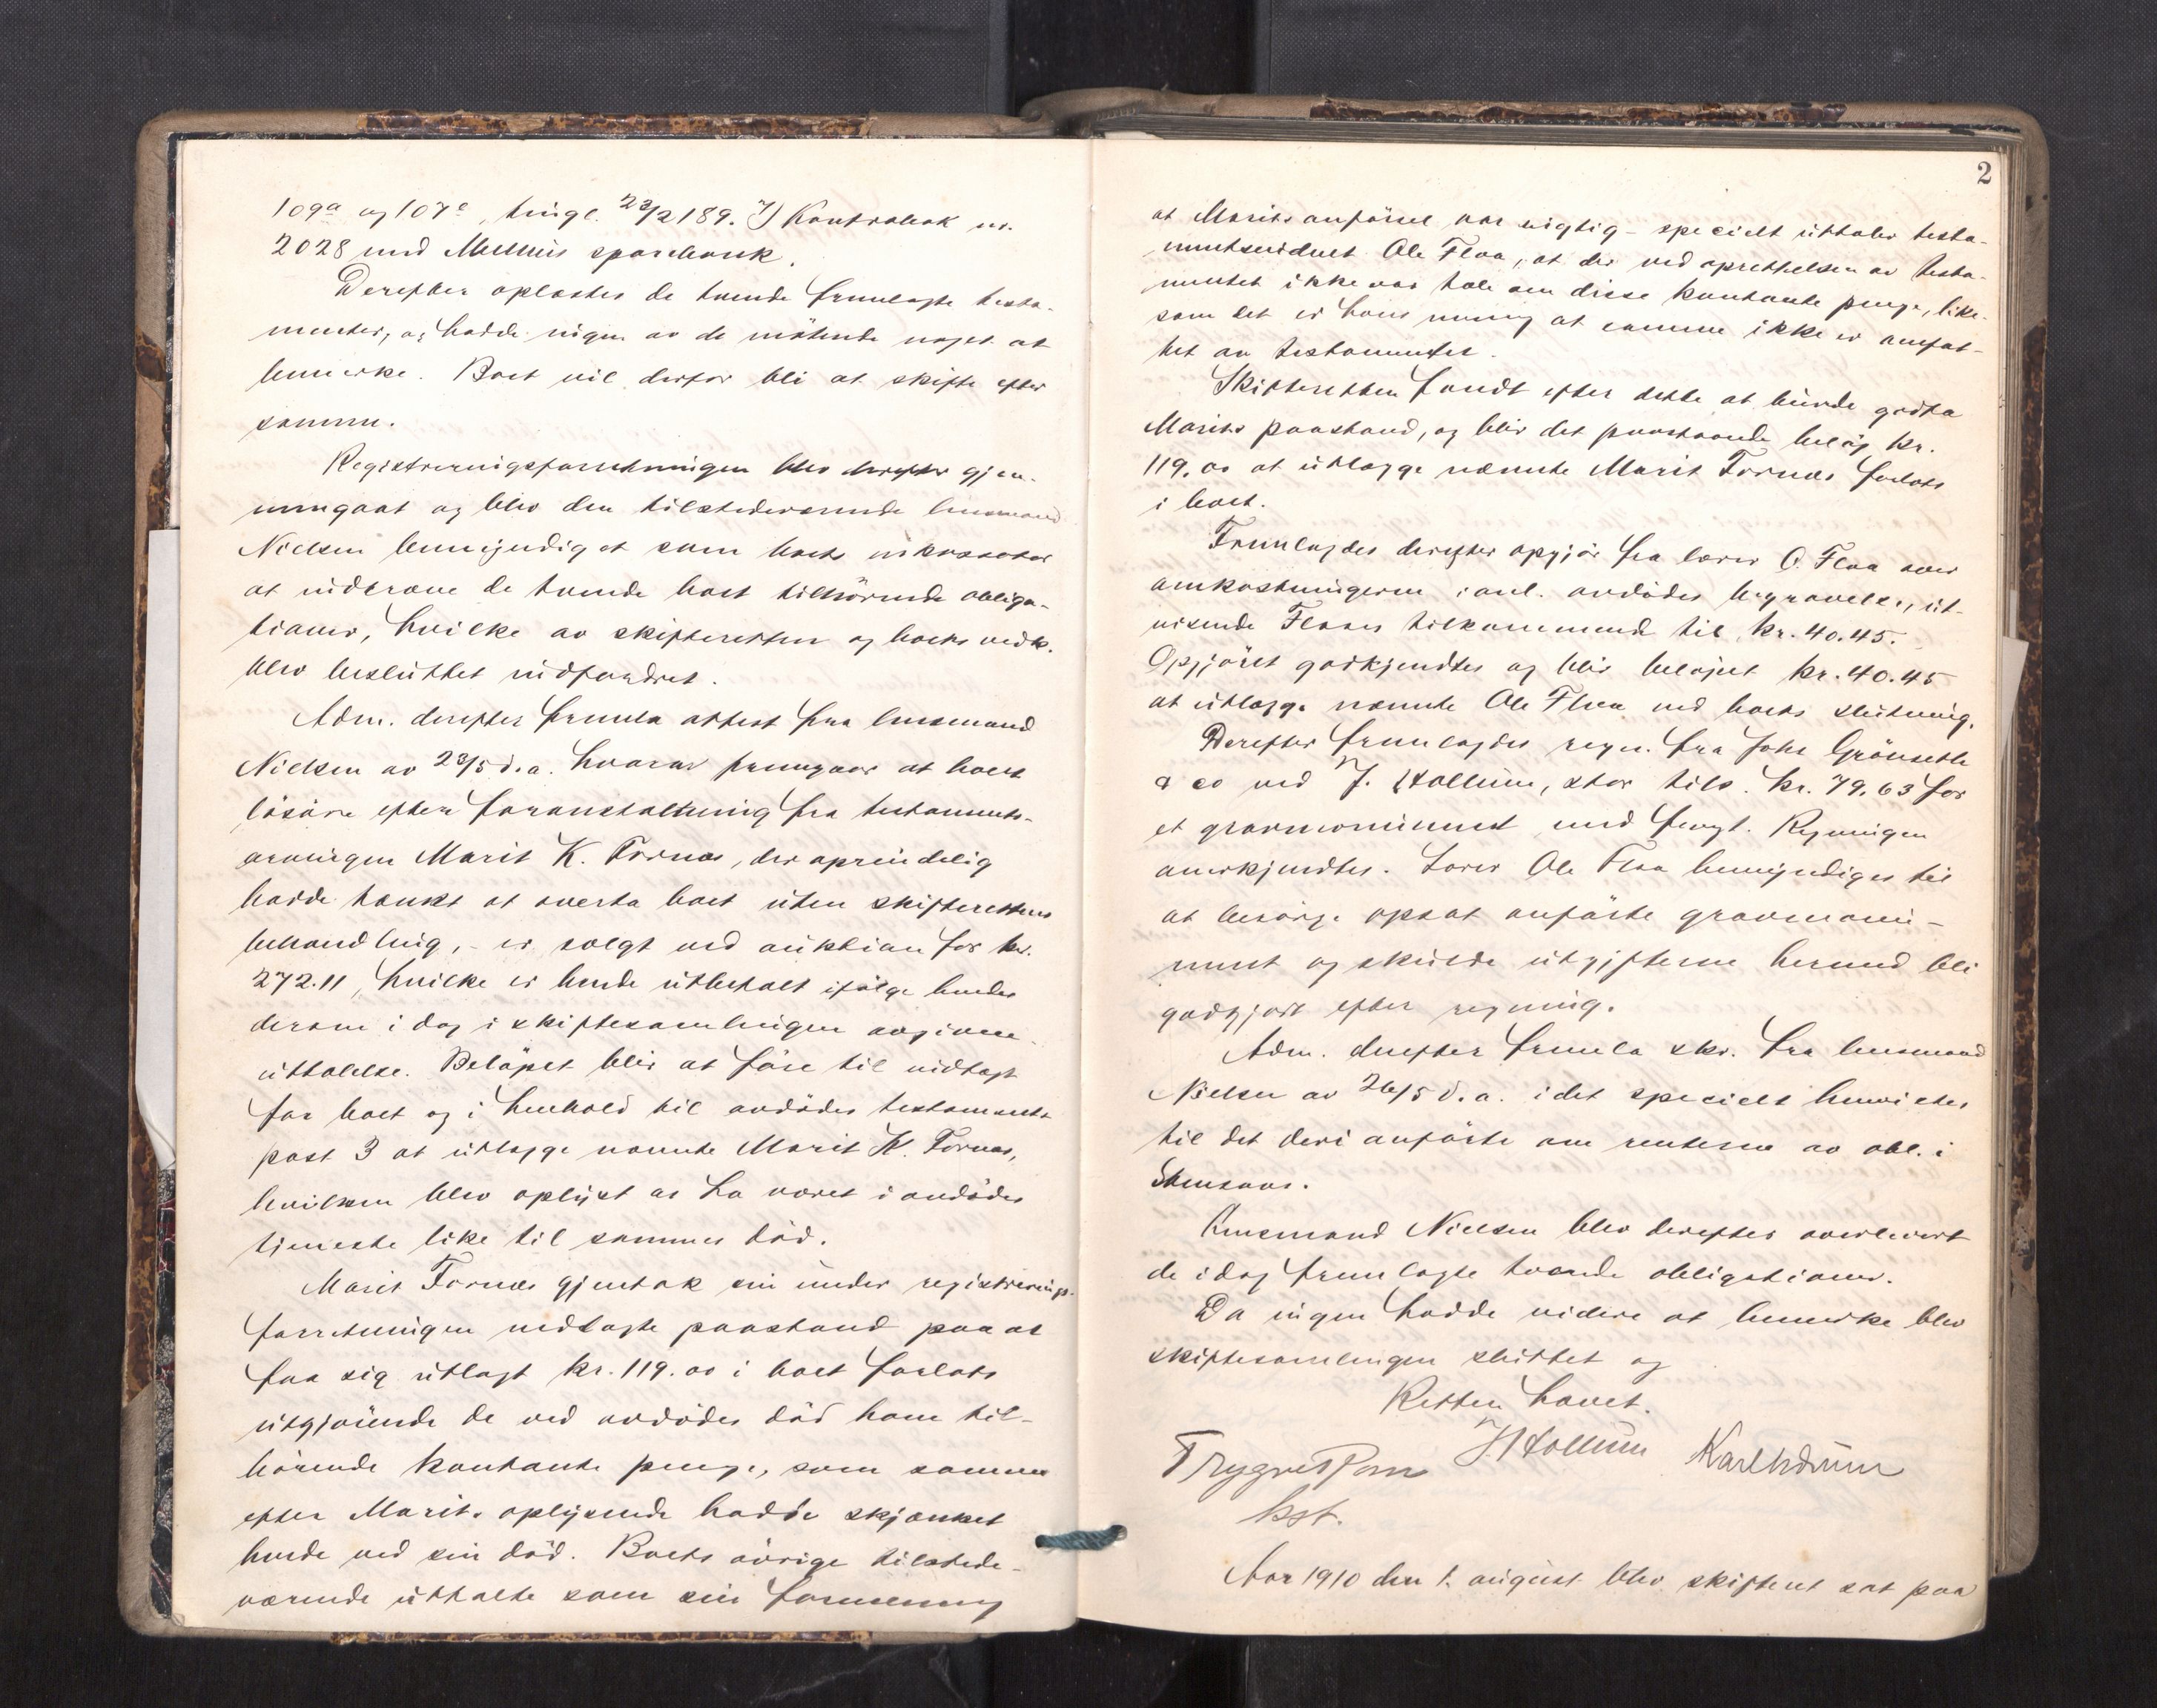 109a og 107e, tingl. 23/2 189. 7) Kontrabok nr.
2028 med Melhus sparebank.
Derefter oplæstes de tvende fremlagte testa-
menter, og hadde ingen av de mötende noget at
bemerke. Boet vil derfor bli at skifte efter
samme.
Registreringsforretningen blev derefter gjen-
nemgaat og blev den tilstedeværende lensmand
Nielsen bemyndiget som boets inkassator
at inddrive de tvende boet tilhörende obliga-
tioner, hvilke av skifteretten og boets vedk.
blev besluttet indfordret.
Adm. derefter fremla attest fra lensmand
Nielsen av 23/5 d.a. hvorav fremgaar at boets
lösöre efter foranstaltning fra testaments-
arvingen Marit K. Tornæs, der oprindelig
hadde tænkt at overta boet uten skifterettens
behandling, - er solgt ved auktion for kr.
272.11, hvilke er hende utbetalt ifölge hendes
derom i dag i skiftesamlingen avgivne
uttalelse. Belöpet blir at före til indtægt
for boet og i henhold til avdödes testaments
post 3 at utlægge nævnte Marit K. Tornæs,
hvilken blev oplyst at ha været i avdödes
tjeneste like til sammes död.
Marit Tornæs gjentok sin under registrerings-
forretningen nedlagte paastand paa at
faa sig utlagt kr. 119.00 i boet forlods
utgjörende de ved avdödes död ham til-
hörende kontante penge, som samme
efter Marits oplysende hadde skjænket
hende ved sin död. Boets övrige tilstede-
værende uttalte som sin formening
2
at Marits anförsel var rigtig - specielt uttaler testa-
mentsvidnet Ole Floa, at der ved oprettelsen av testa-
mentet ikke var tale om disse kontante penge, like-
som det er hans mening at samme ikke er omfat-
tet av testamentet.
Skifteretten fandt efter dette at burde godta
Marits paastand, og blir det paastaaende belöp kr.
119.00 at utlægge nævnte Marit Tornæs forlods
i boet.
Fremlagdes derefter opgjör fra lærer O. Floa over
omkostningerne i anl. avdödes begravelse, ut-
visende Floas tilkommende til kr. 40.45.
Opgjöret godkjendtes og blir belöpet kr. 40.45
at utlægge nævnte Ole Floa ved boets slutning.
Derefter fremlagdes regn. fra Johs Grönseth
& co ved J. Hollum, stor tils. kr. 79.63 for
et gravmonument med fragt. Regningen
anerkjendtes. Lærer Ole Floa bemyndiges til
at besörge opsat anförte gravmonu-
ment og skulde utgifterne herved bli
godgjort efter regning.
Adm. derefter fremla skr. fra lensmand
Nielsen av 26/5 d.a. idet specielt henvistes
til det deri anförte om renterne av obl. i
Stensaas.
Lensmand Nielsen blev derefter overlevert
de idag fremlagte tvende obligationer.
Da ingen hadde videre at bemerke blev
skiftesamlingen sluttet og
Retten hævet.
Trygve Rom J. Hollum Karl
kst.
Aar 1910 den 1. august blev skifteret sat paa